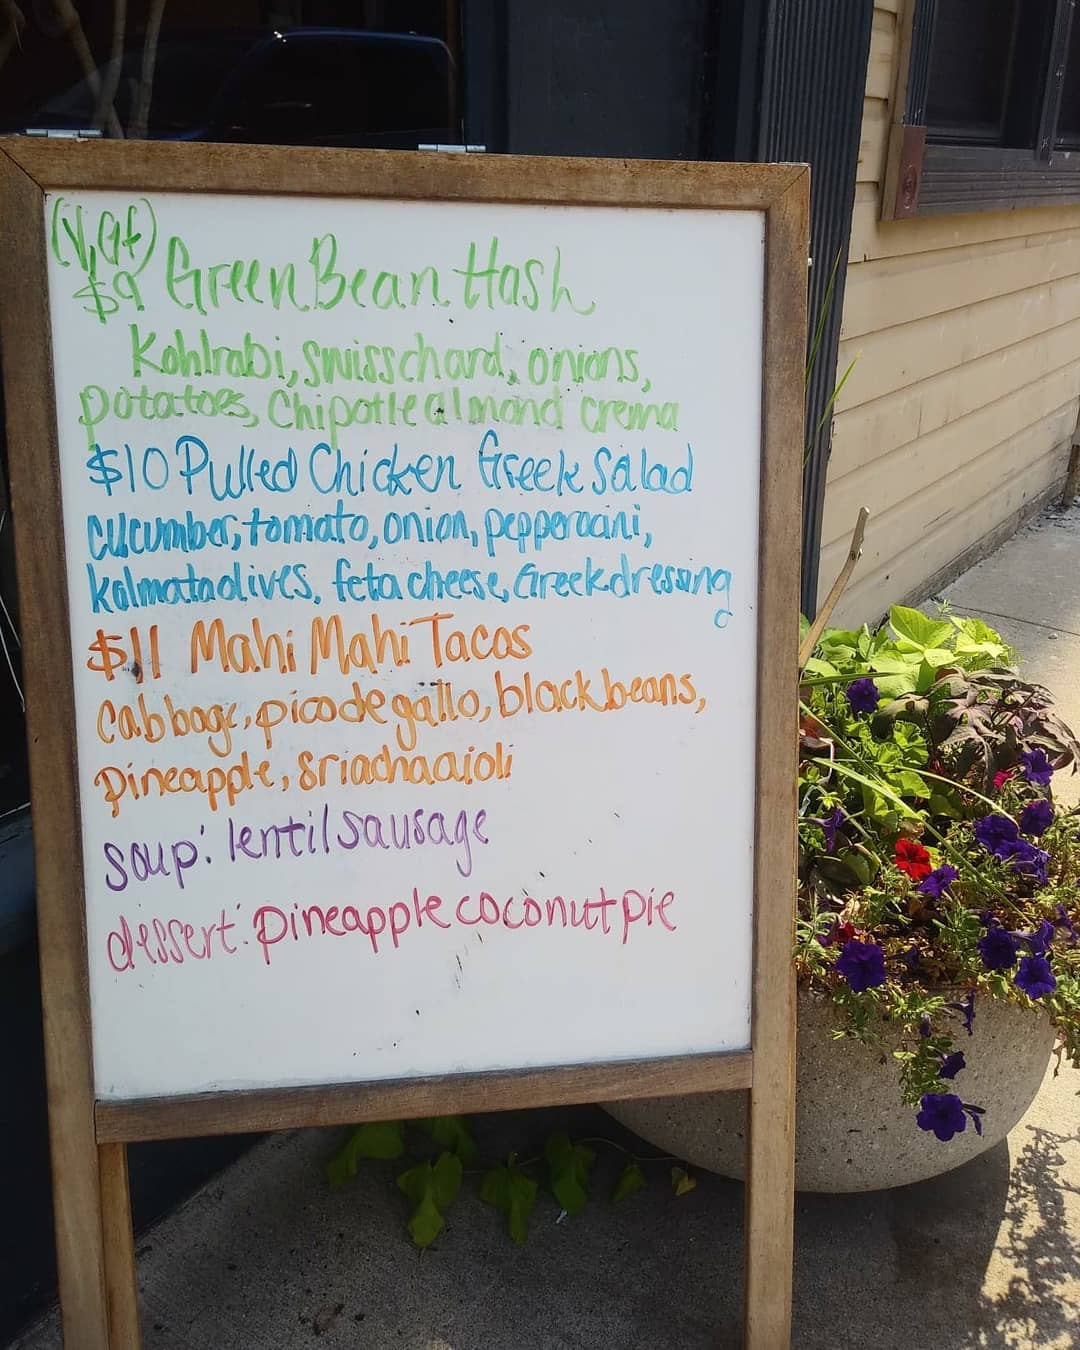 (V, Gf)
$9 Green Bean Hash
Kohlrabi, swisschard, onions,
potatoes, Chipotle almond crema
$10 Pulled Chicken Greek Salad
cucumber, tomato, onion, pepperocini,
kalmata olives, feta cheese, Greek dressing
$11 Mahi Mahi Tacos
Cabbage, pico de gallo, black beans,
pineapple, sriacha aioli
soup: lentil sausage
dessert: pineapple coconut pie